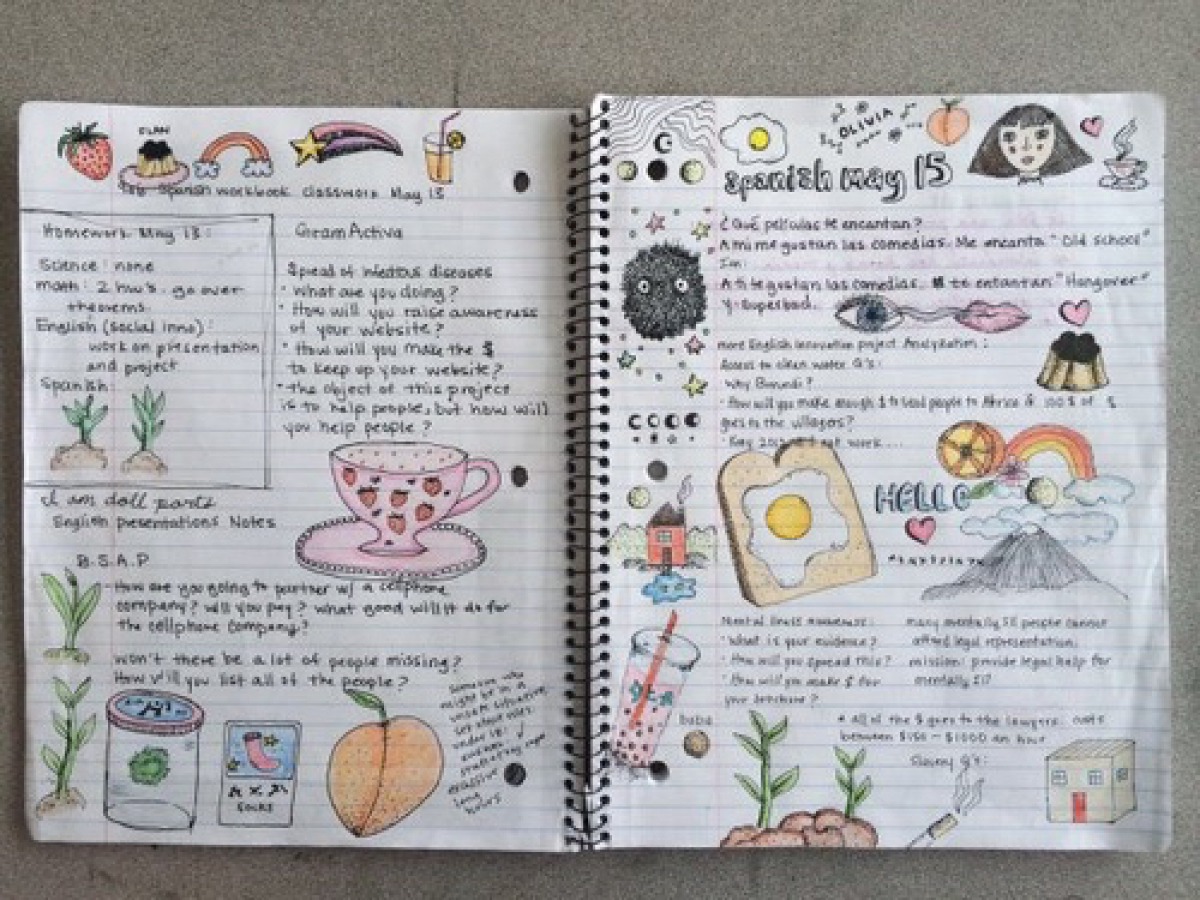 FLAN
Spanish workbook classwork May 13
Homework May 13:
Science: none
math: 2 hw's. go over
theorems.
English (social inno):
work on presentation
and project
Spanish:
GramActiva
Spread of infectious diseases
• What are you doing?
• How will you raise awareness
of your website?
• How will you make the $
to keep up your website?
• The object of this project
is to help people, but how will
you help people?
I am doll parts
English presentations Notes
B.S.A.P
- How are you going to partner w/ a cellphone
company? Will you pay? What good will it do for
the cellphone company?
won't there be a lot of people missing?
How will you list all of the people?
someone who
might be in a
unsafe situation.
under 18.
excessive
long
hours
SOCKS
OLIVIA
Spanish may 15
¿Qué películas te encantan?
A mi me gustan las comedias. Me encanta "Old School"
Ian:
A ti te gustan las comedias. te encantan "Hangover"
y Superbad.
more English innovation project Analyzation:
Access to clean water Q's:
Why Burundi?
• How will you make enough $ to send people to Africa & 100% of $
goes to the villages?
not work....
HELLO
Mental illness awareness:
• What is your evidence?
• How will you spread this?
• How will you make $ for
your brochure?
many mentally ill people cannot
afford legal representation.
mission: provide legal help for
mentally ill
* all of the $ goes to the lawyers. costs
between $150 - $1000 an hour
boba
Slavery Q's: